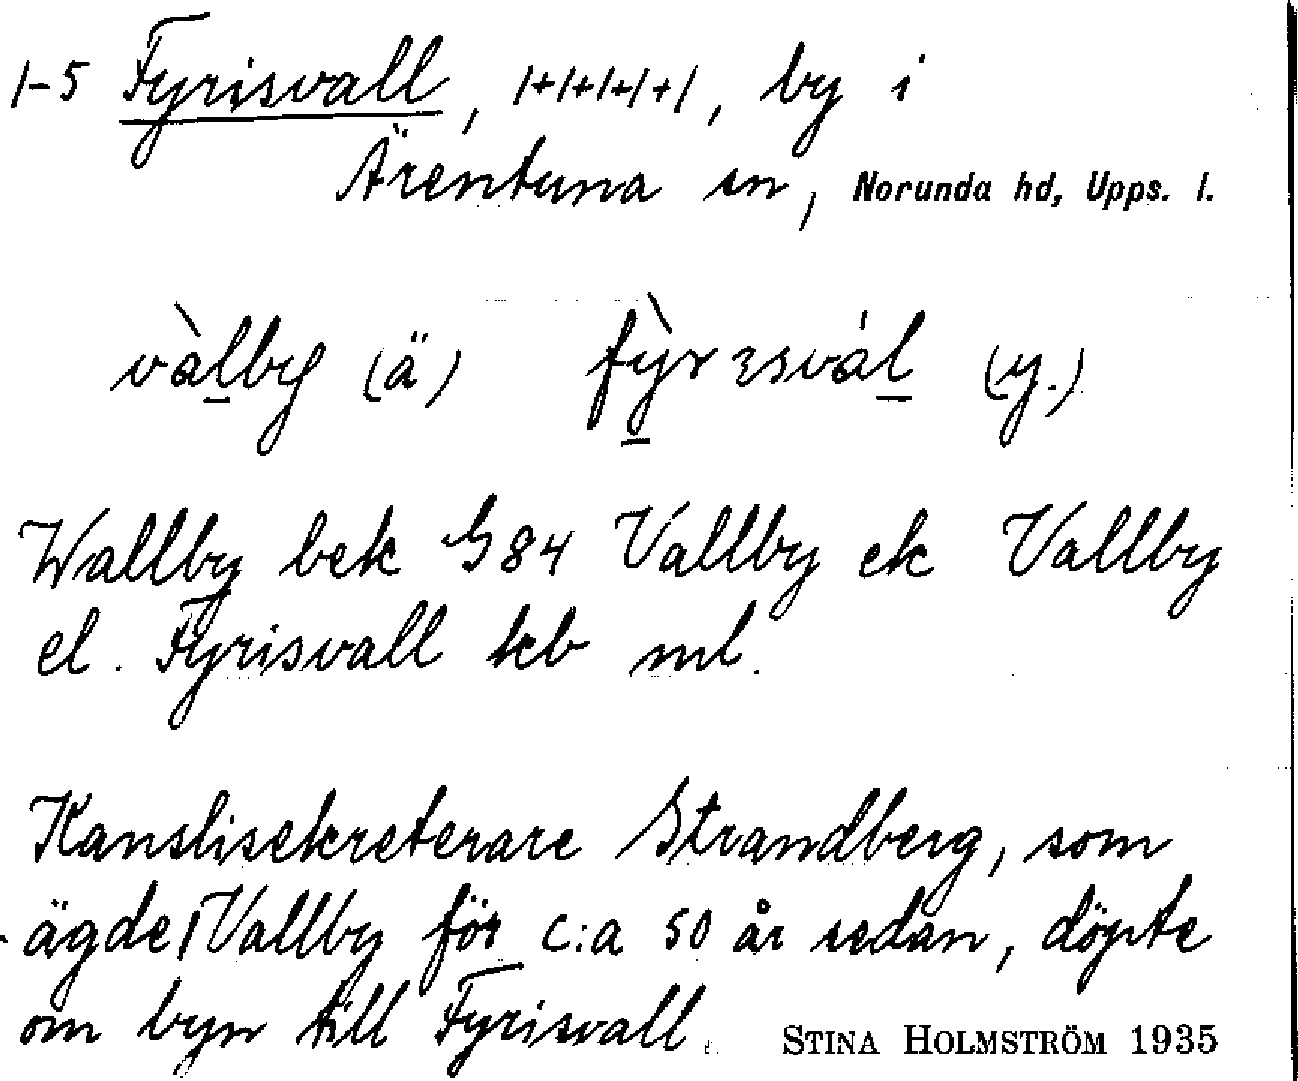 1-5 Fyrisvall, 1+1+1+1+1, by i
Ärentuna sn, Norunda hd, Upps. l.
vàlby (ä) fỳrɜsvál (y.)
Wallby bek G84 Vallby ek Vallby
el. Fyrisvall kb ml.
Kanslisekreterare Strandberg, som
ägde Vallby för c:a 50 år sedan, döpte
om byn till Fyrisvall.
STINA HOLMSTRÖM 1935